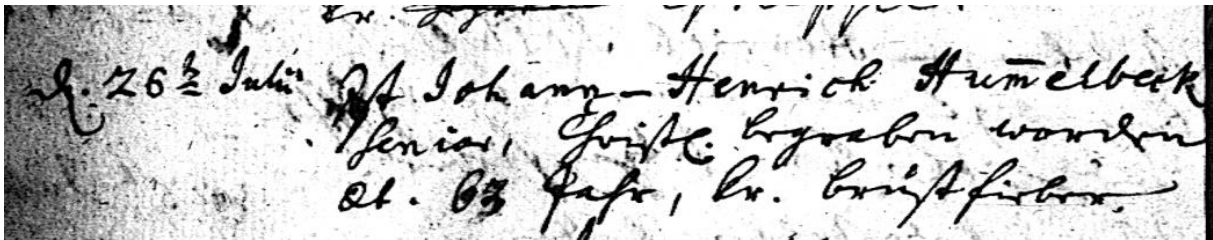 d. 26t Julii ist Johann-Henrich Hum̅elbeck
Senior, Christl. begraben worden
æt. 63 Jahr, kr. brustfieber.